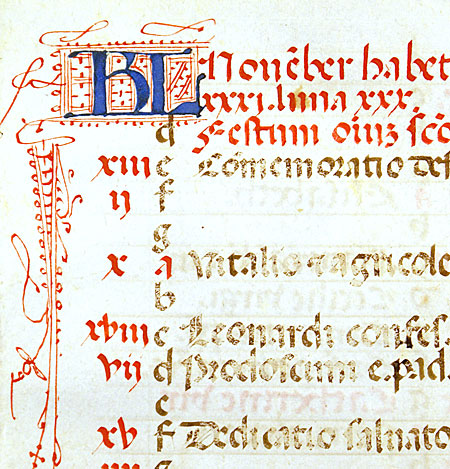 KL Nouēber habet
xxxj. luna xxx.
d Festum oīuȝ scō
xiii e Cōmemoratio def
ii f
g
x a Vitalis ⁊ agricole
b
xviii c Leonardi confes.
vii d Prodoscimi e. pad.
e
xv f Dedicatio saluato